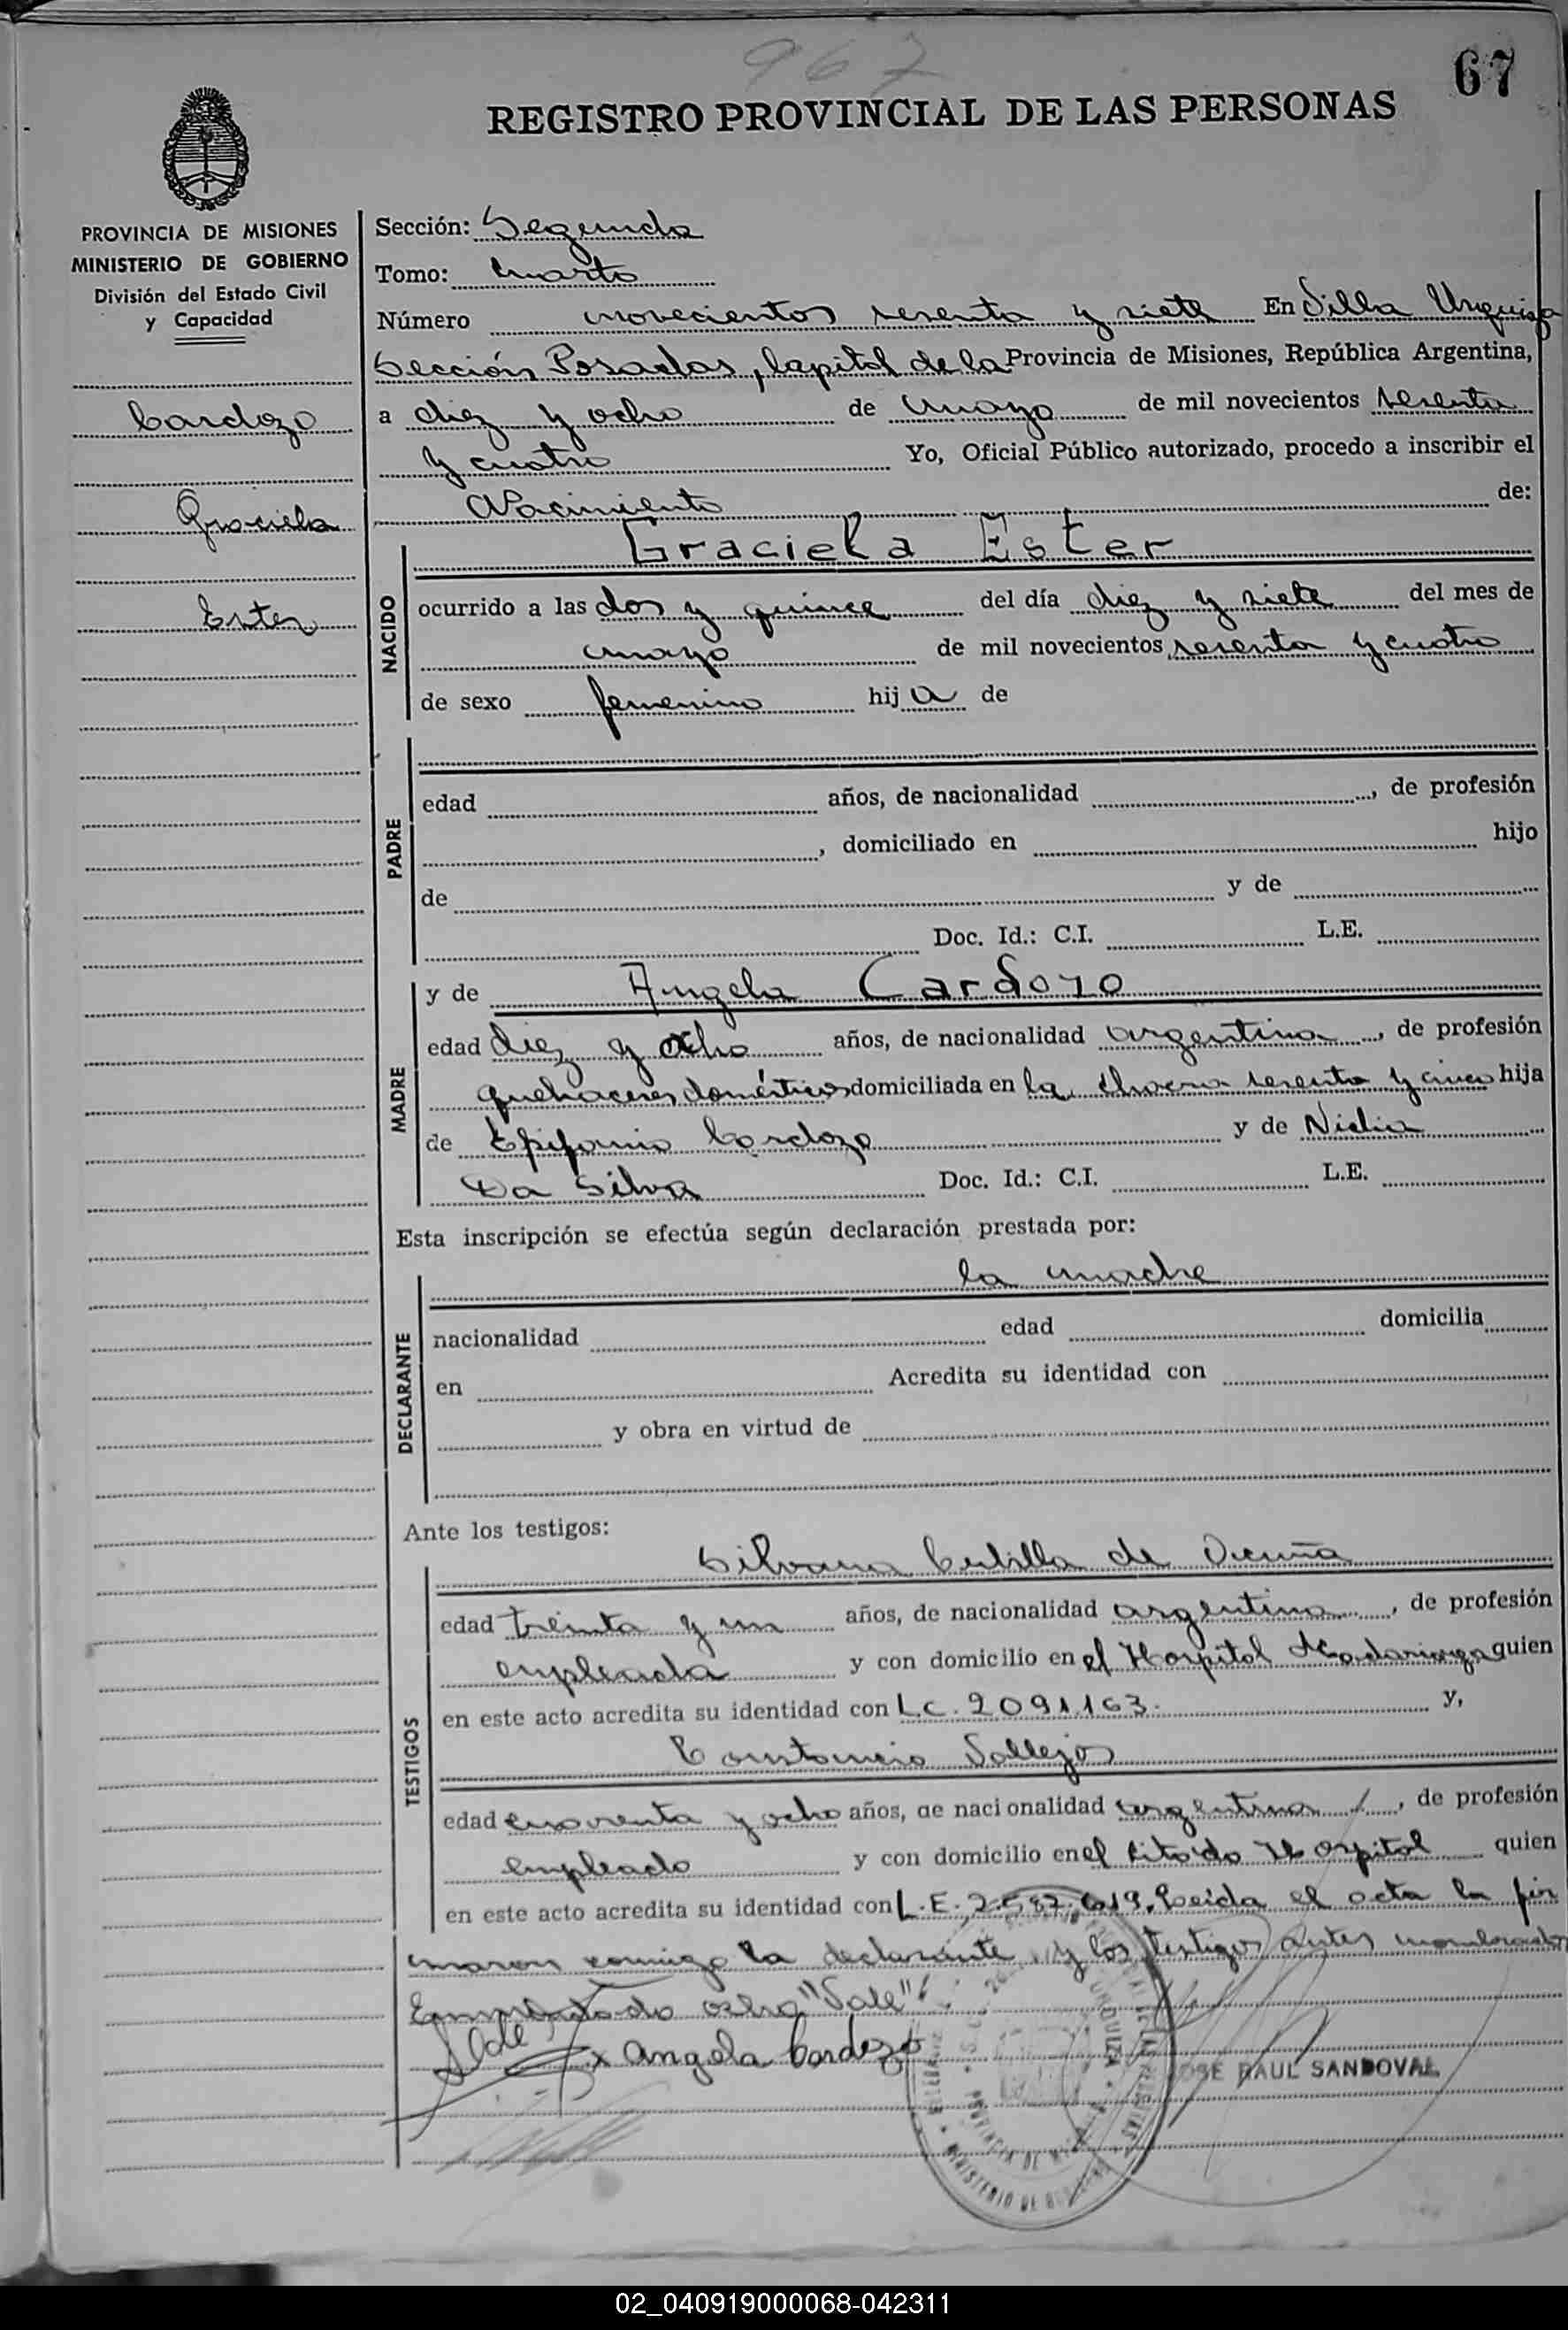 967
67
REGISTRO PROVINCIAL DE LAS PERSONAS
PROVINCIA DE MISIONES
MINISTERIO DE GOBIERNO
División del Estado Civil
y Capacidad
Cardozo
Graciela
Ester
Sección: Segunda
Tomo: Cuarto
Número novecientos sesenta y siete En Villa Urquiza
Sección Posadas, Capital de la Provincia de Misiones, República Argentina,
a diez y ocho de mayo de mil novecientos sesenta
y cuatro Yo, Oficial Público autorizado, procedo a inscribir el
Nacimiento de:
NACIDO
Graciela Ester
ocurrido a las dos y quince del día diez y siete del mes de
mayo de mil novecientos sesenta y cuatro
de sexo femenino hij a de
PADRE
edad años, de nacionalidad , de profesión
, domiciliado en hijo
de y de
Doc. Id.: C.I. L.E.
MADRE
y de Angela Cardozo
edad diez y ocho años, de nacionalidad argentina, de profesión
quehaceres domésticos domiciliada en la chacra sesenta y cinco hija
de Epifanio Cardozo y de Nidia
Da Silva Doc. Id.: C.I. L.E.
Esta inscripción se efectúa según declaración prestada por:
DECLARANTE
la madre
nacionalidad edad domicilia
en Acredita su identidad con
y obra en virtud de
Ante los testigos:
TESTIGOS
Silvana de Vicuña
edad treinta y un años, de nacionalidad argentina, de profesión
empleada y con domicilio en el Hospital Madariaga quien
en este acto acredita su identidad con L.C. 2091.163. y,
Constancio Vallejos
edad cuarenta y ocho años, de nacionalidad argentina, de profesión
empleado y con domicilio en el citado Hospital quien
en este acto acredita su identidad con L.E. 2.587.619. Leída el acta la fir
maron conmigo la declarante y los testigos antes nombrados
Enmendado ocho "Vale"
Angela Cardozo
JOSE RAUL SANDOVAL
PROVINCIA DE MISIONES
MINISTERIO DE GOBIERNO
02_040919000068-042311